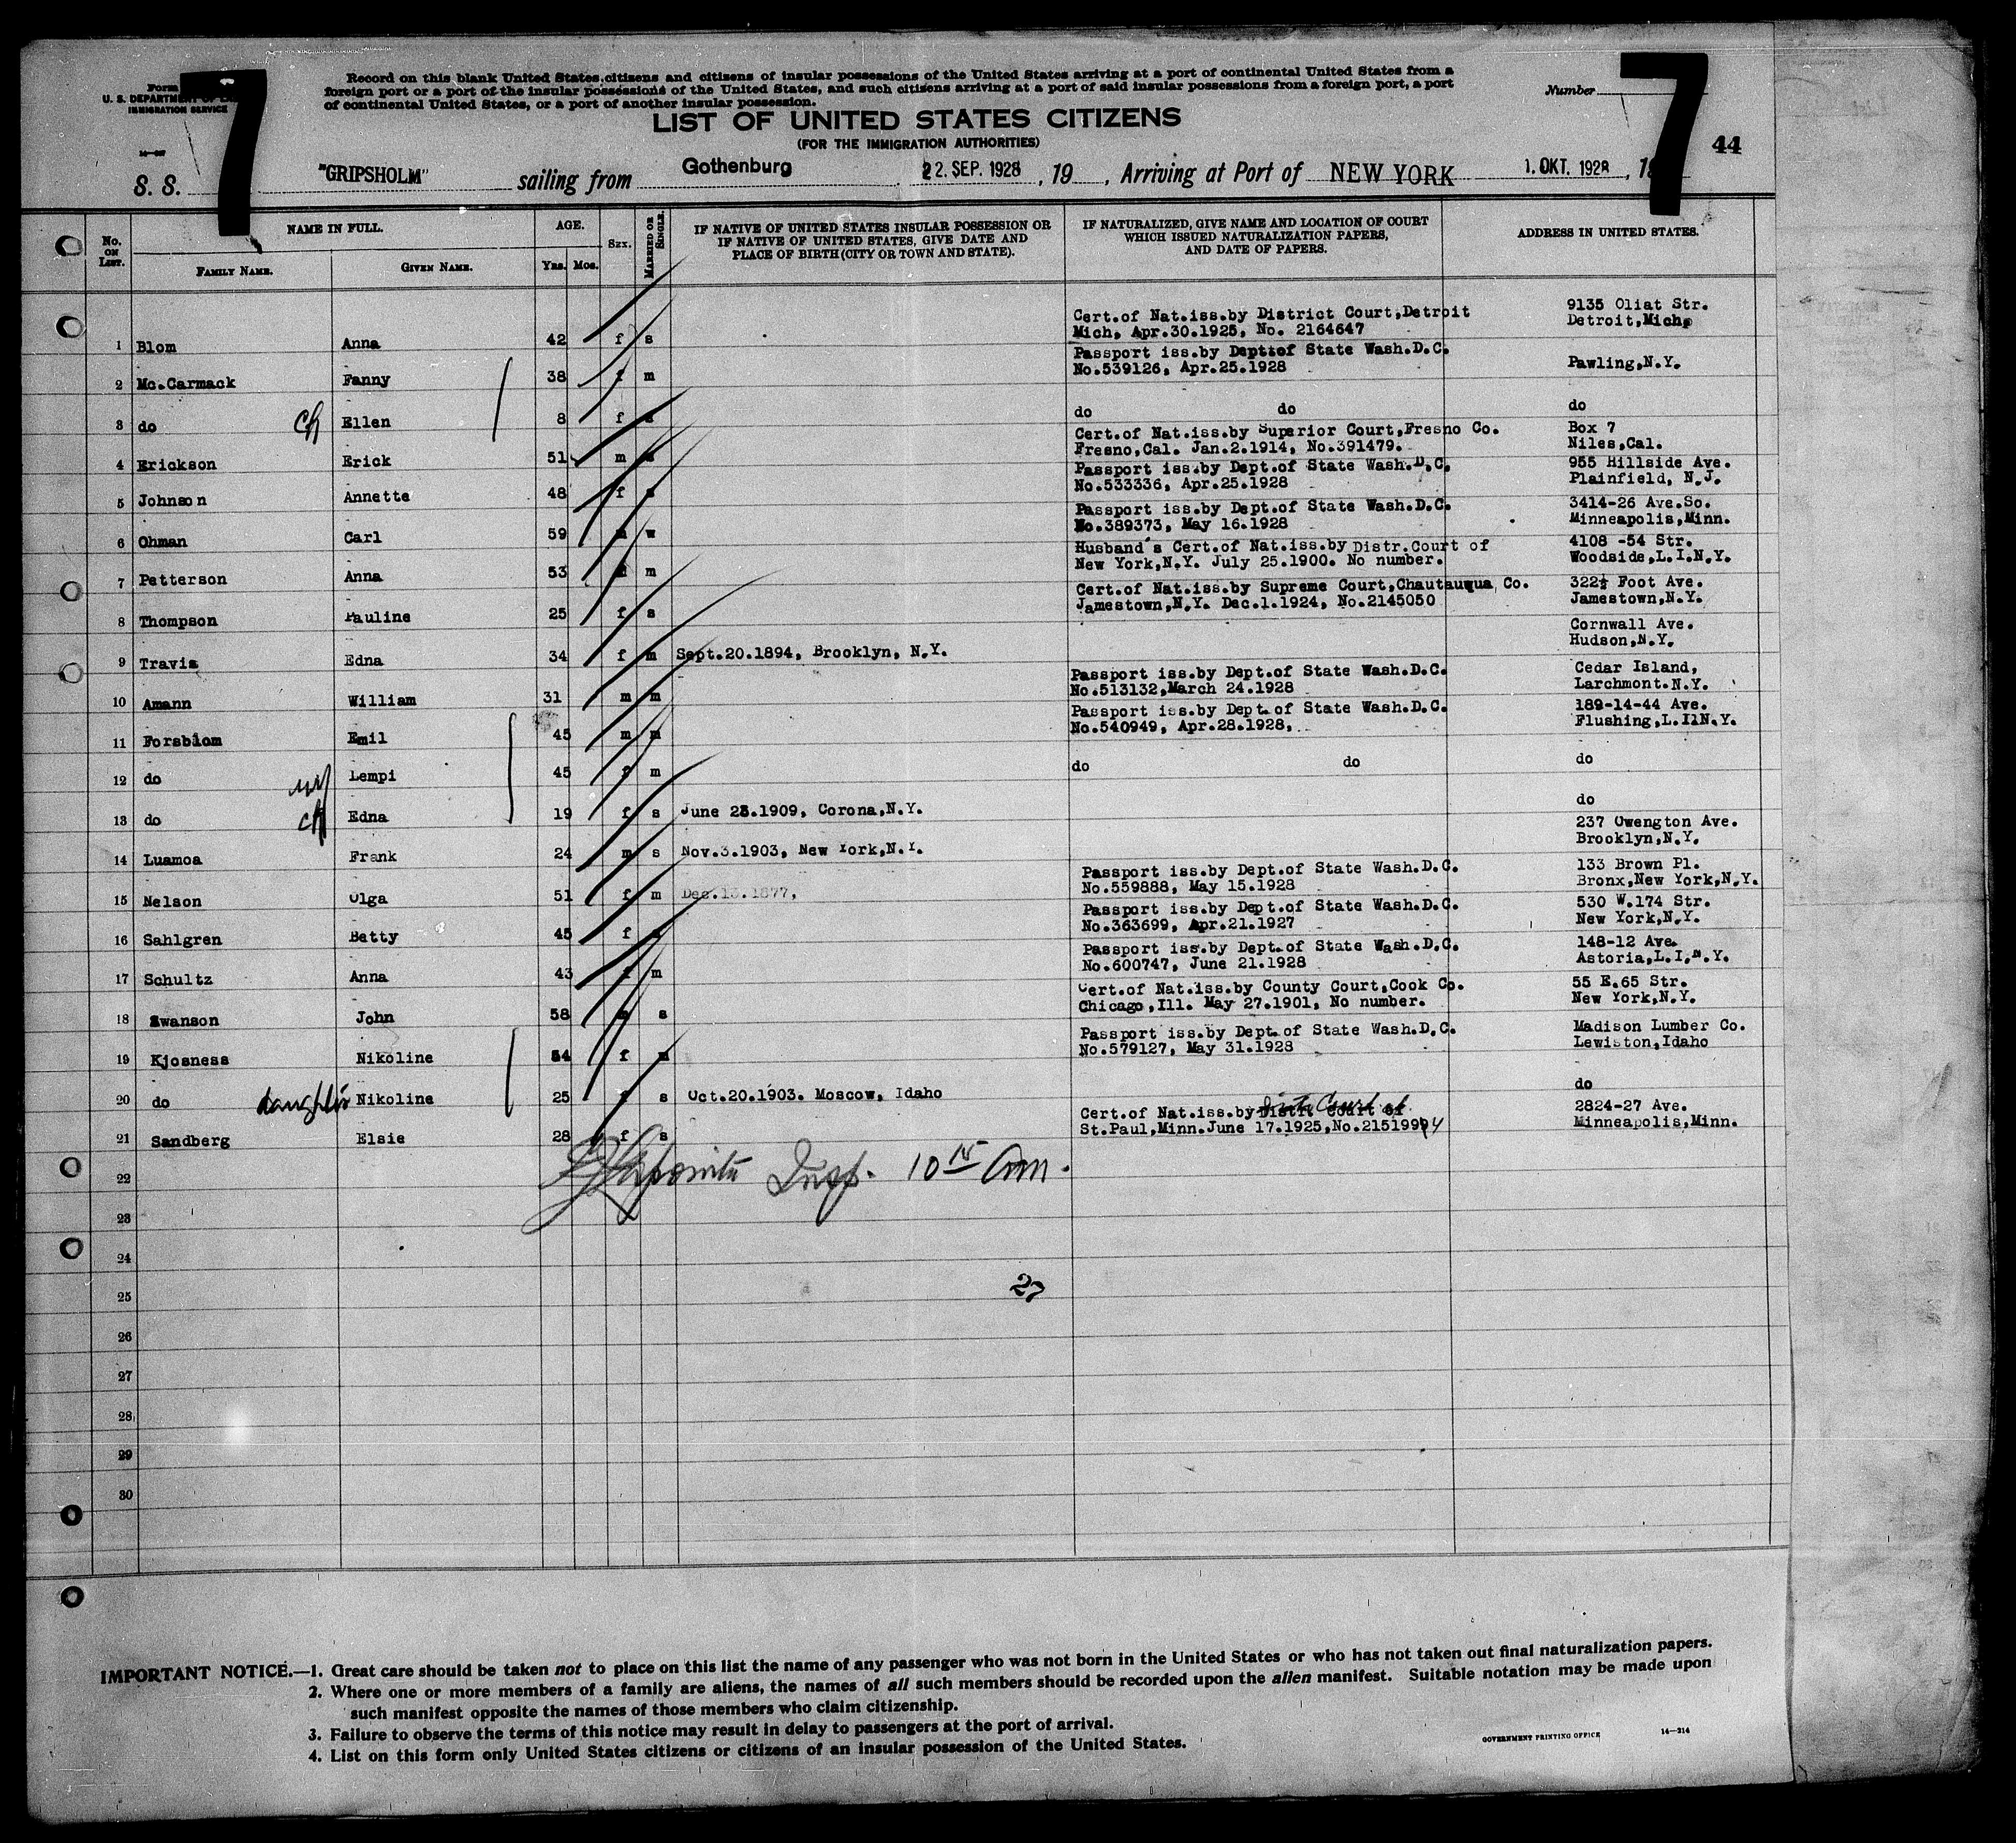 Form
U. S. DEPARTMENT OF
IMMIGRATION SERVICE
7
Record on this blank United States citizens and citizens of insular possessions of the United States arriving at a port of continental United States from a
foreign port or a port of the insular possessions of the United States, and such citizens arriving at a port of said insular possessions from a foreign port, a port
of continental United States, or a port of another insular possession.
LIST OF UNITED STATES CITIZENS
(FOR THE IMMIGRATION AUTHORITIES)
Number
7
44
S. S. "GRIPSHOLM" sailing from Gothenburg 22. SEP. 1928, 19 , Arriving at Port of NEW YORK 1. OKT. 1928, 19
No. ON LIST. NAME IN FULL. AGE. SEX. MARRIED OR SINGLE. IF NATIVE OF UNITED STATES INSULAR POSSESSION OR IF NATIVE OF UNITED STATES, GIVE DATE AND PLACE OF BIRTH (CITY OR TOWN AND STATE). IF NATURALIZED, GIVE NAME AND LOCATION OF COURT WHICH ISSUED NATURALIZATION PAPERS, AND DATE OF PAPERS. ADDRESS IN UNITED STATES.
FAMILY NAME. GIVEN NAME. Yrs. Mos.
Cert.of Nat.iss.by District Court,Detroit 9135 Oliat Str.
1 Blom Anna 42 f s Mich, Apr.30.1925, No. 2164647 Detroit,Mich,
Passport iss.by Dept.of State Wash.D.C.
2 Mc.Carmack Fanny 38 f m No.539126, Apr.25.1928 Pawling,N.Y.
3 do ch Ellen 8 f do do do
Cert.of Nat.iss.by Superior Court,Fresno Co. Box 7
4 Erickson Erick 51 m Fresno,Cal. Jan.2.1914, No.391479. Niles,Cal.
Passport iss.by Dept.of State Wash.D.C. 955 Hillside Ave.
5 Johnson Annette 48 f No.533336, Apr.25.1928 Plainfield, N.J.
Passport iss.by Dept.of State Wash.D.C. 3414-26 Ave.So.
6 Ohman Carl 59 m w No.389373, May 16.1928 Minneapolis,Minn.
Husband's Cert.of Nat.iss.by Distr.Court of 4108 -54 Str.
7 Patterson Anna 53 m New York,N.Y. July 25.1900. No number. Woodside,L.I.N.Y.
Cert.of Nat.iss.by Supreme Court,Chautauqua Co. 322½ Foot Ave.
8 Thompson Pauline 25 f s Jamestown,N.Y. Dec.1.1924, No.2145050 Jamestown,N.Y.
Cornwall Ave.
9 Travis Edna 34 f m Sept.20.1894, Brooklyn, N.Y. Hudson,N.Y.
Passport iss.by Dept.of State Wash.D.C. Cedar Island,
10 Amann William 31 m m No.513132,March 24.1928 Larchmont.N.Y.
Passport iss.by Dept.of State Wash.D.C. 189-14-44 Ave.
11 Forsblom Emil 45 m m No.540949, Apr.28.1928, Flushing,L.I.N.Y.
12 do wf Lempi 45 f m do do do
13 do ch Edna 19 f s June 23.1909, Corona,N.Y. do
237 Owengton Ave.
14 Luamoa Frank 24 m s Nov.3.1903, New York,N.Y. Brooklyn,N.Y.
Passport iss.by Dept.of State Wash.D.C. 133 Brown Pl.
15 Nelson Olga 51 f m Dec.13.1877, No.559888, May 15.1928 Bronx,New York,N.Y.
Passport iss.by Dept.of State Wash.D.C. 530 W.174 Str.
16 Sahlgren Betty 45 f No.363699, Apr.21.1927 New York,N.Y.
Passport iss.by Dept.of State Wash.D.C. 148-12 Ave.
17 Schultz Anna 43 f m No.600747, June 21.1928 Astoria,L.I,N.Y.
Cert.of Nat.iss.by County Court,Cook Co. 55 E.65 Str.
18 Swanson John 58 s Chicago,Ill. May 27.1901, No number. New York,N.Y.
Passport iss.by Dept.of State Wash.D.C. Madison Lumber Co.
19 Kjosness Nikoline 54 f m No.579127, May 31.1928 Lewiston,Idaho
20 do daughter Nikoline 25 f s Oct.20.1903. Moscow, Idaho do
Cert.of Nat.iss.by Distr. Court of 2824-27 Ave.
21 Sandberg Elsie 28 f s St.Paul,Minn.June 17.1925,No.2151994 Minneapolis,Minn.
22 Insp. 10 15 am.
23
24
25
26
27
28
29
30
IMPORTANT NOTICE.—1. Great care should be taken not to place on this list the name of any passenger who was not born in the United States or who has not taken out final naturalization papers.
2. Where one or more members of a family are aliens, the names of all such members should be recorded upon the alien manifest. Suitable notation may be made upon
such manifest opposite the names of those members who claim citizenship.
3. Failure to observe the terms of this notice may result in delay to passengers at the port of arrival.
4. List on this form only United States citizens or citizens of an insular possession of the United States.
GOVERNMENT PRINTING OFFICE 14—214